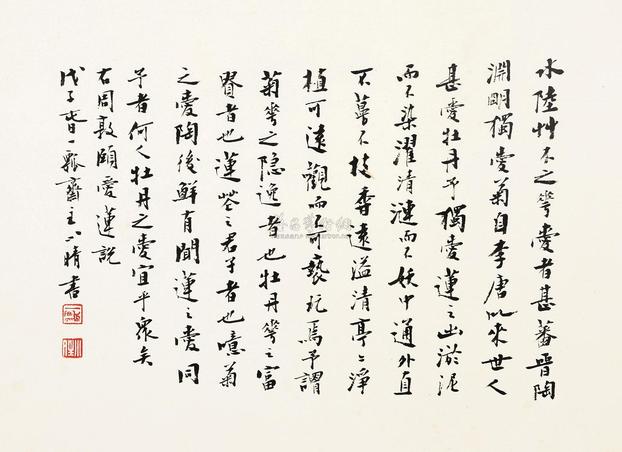 水陸艸木之華愛者甚蕃晉陶
淵明獨愛菊自李唐以來世人
甚愛牡丹予獨愛蓮之出淤泥
而不染濯清漣而不妖中通外直
不蔓不枝香遠溢清亭〻淨
植可遠觀而不可褻玩焉予謂
菊華之隐逸者也牡丹華之富
貴者也蓮華之君子者也噫菊
之愛陶後鮮有聞蓮之愛同
予者何人牡丹之愛宜乎眾矣
右周敦頤愛蓮説
戊子旾一瓢齋主晴書